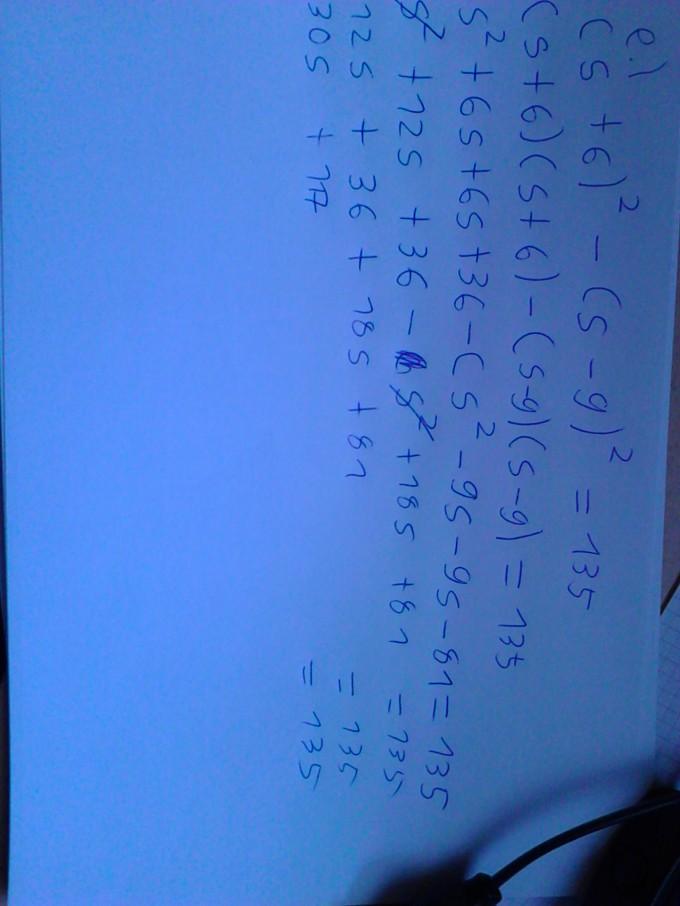 e.)
(s + 6)² - (s - 9)² = 135
(s + 6)(s + 6) - (s - 9)(s - 9) = 135
s² + 6s + 6s + 36 - (s² - 9s - 9s - 81 = 135
s² + 12s + 36 - s² + 18s + 81 = 135
12s + 36 + 18s + 81 = 135
30s + 117 = 135